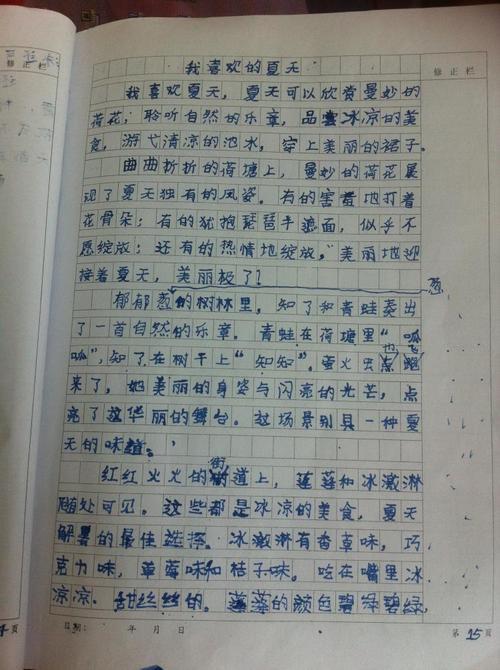 修正栏
修正栏
我喜欢的夏天
我喜欢夏天，夏天可以欣赏曼妙的
荷花，聆听自然的乐章，品尝冰凉的美
食，游弋清凉的池水，穿上美丽的裙子。
曲曲折折的荷塘上，曼妙的荷花展
现了夏天独有的风姿。有的害羞地打着
花骨朵；有的犹抱琵琶半遮面，似乎不
愿绽放；还有的热情地绽放，美丽地迎
接着夏天，美丽极了！
葱
郁郁葱的树林里，知了和青蛙奏出
了一首自然的乐章。青蛙在荷塘里“呱
呱”，知了在树干上“知知”。萤火虫也飞
来了，她美丽的身姿与闪亮的光芒，点
亮了这华丽的舞台。这场景别具一种夏
天的味道。
红红火火的街道上，莲蓬和冰激淋
随处可见。这些都是冰凉的美食，夏天
解暑的最佳选择。冰激淋有香草味，巧
克力味，草莓味和桔子味。吃在嘴里冰
凉凉、甜丝丝的。莲蓬的颜色碧绿碧绿，
日期： 年 月 日
第25页
页